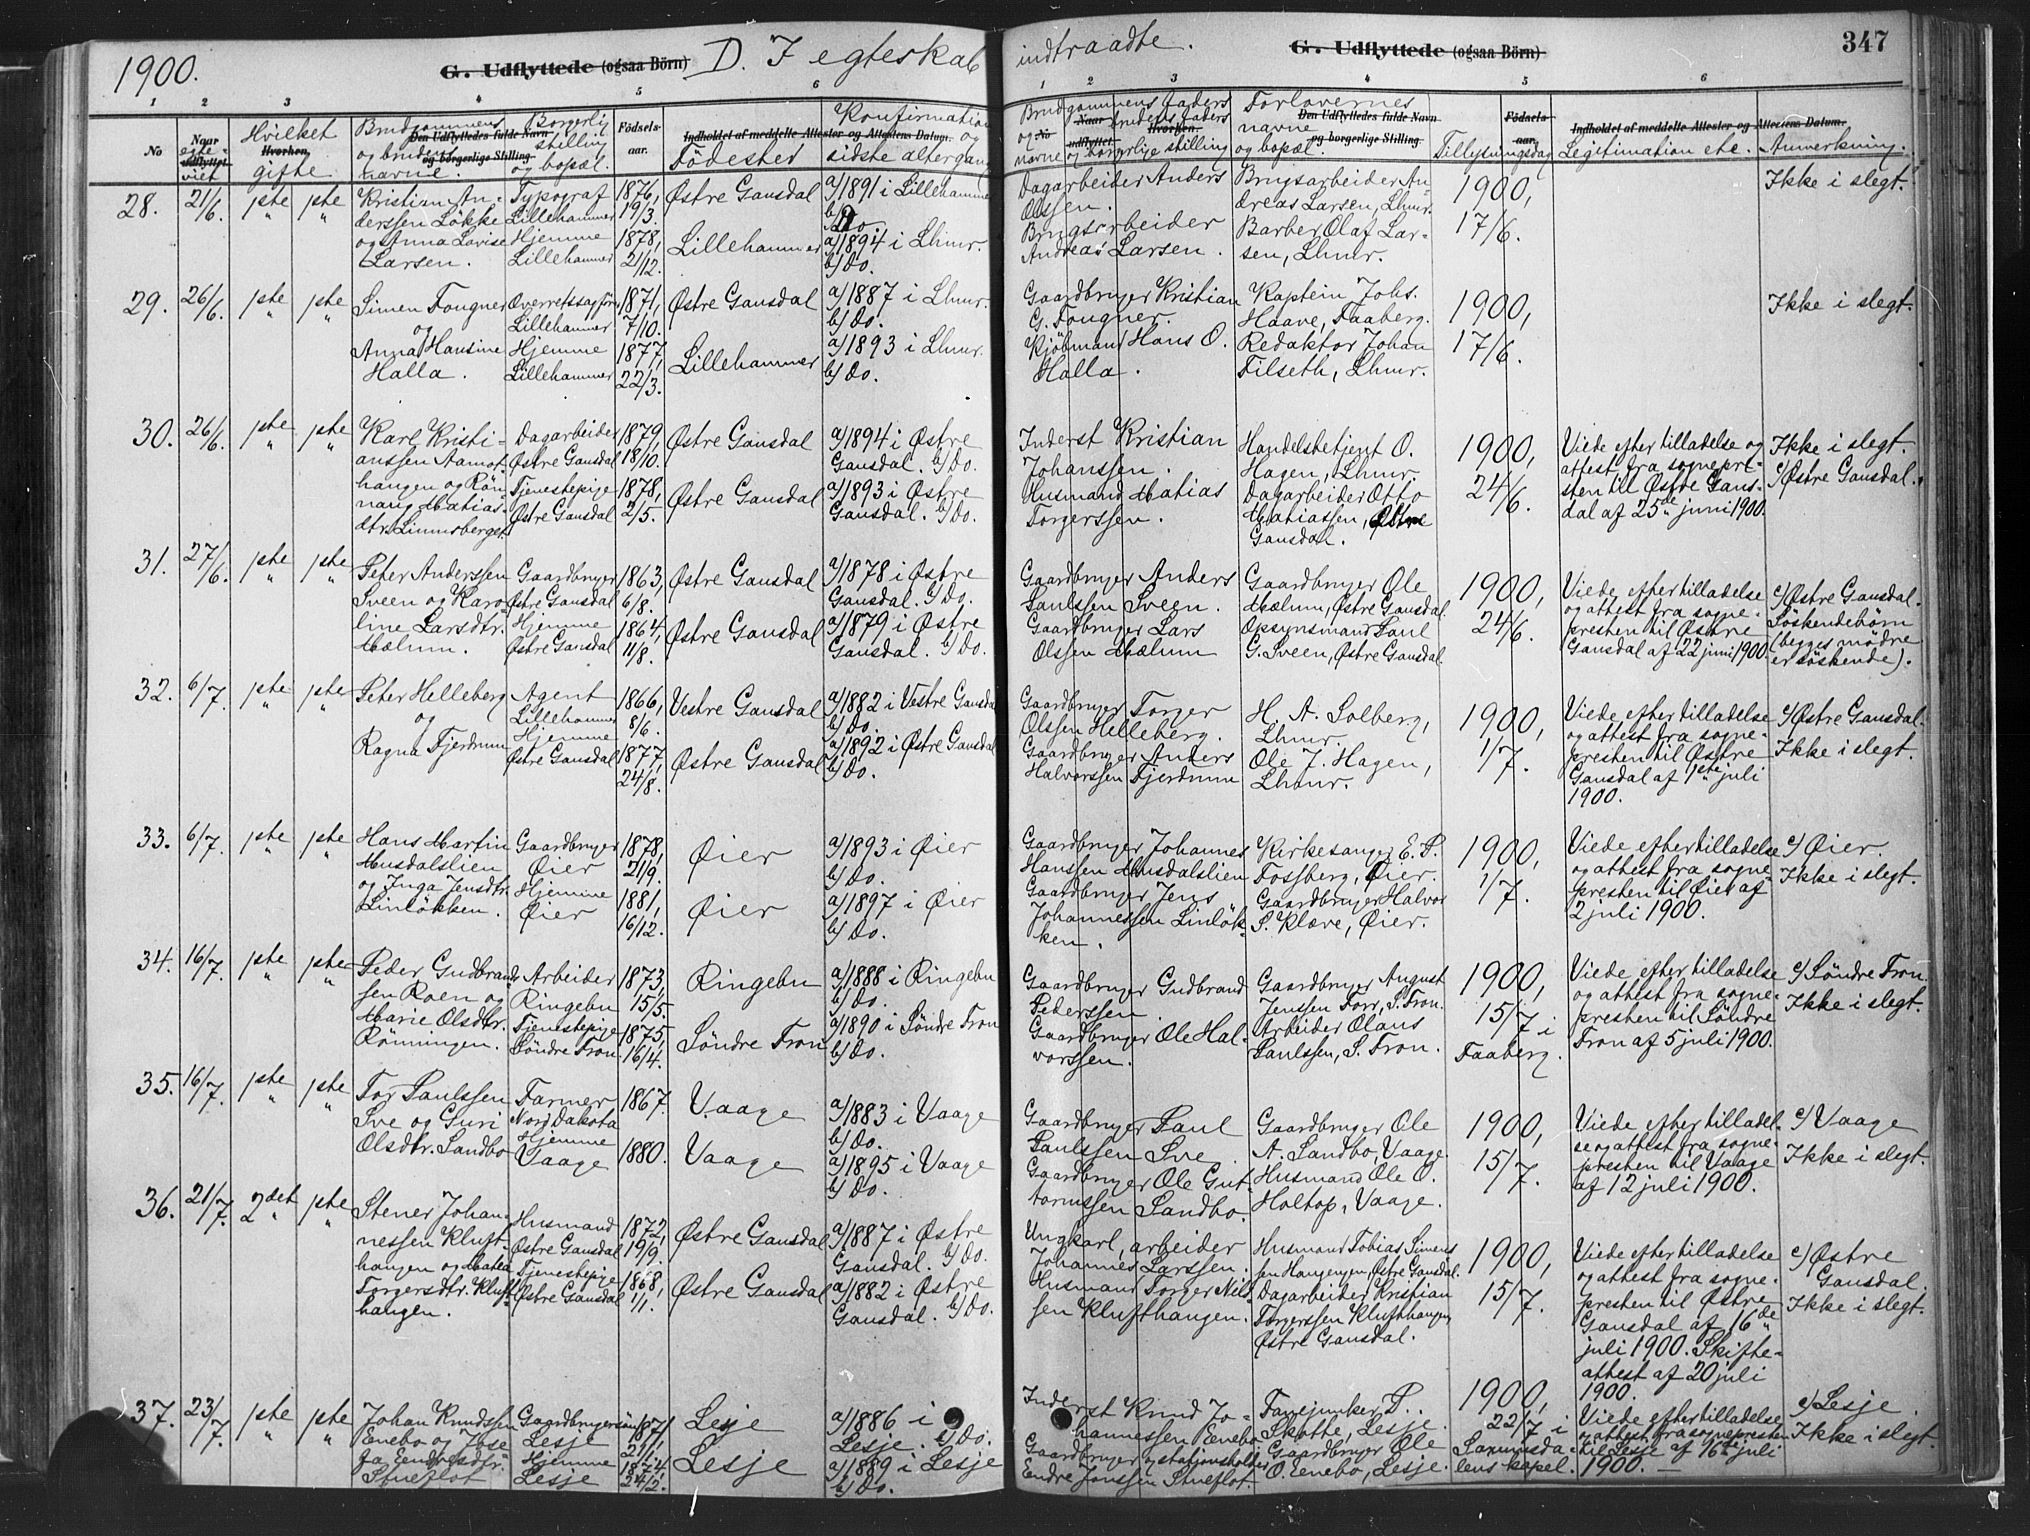 1900.
G. Udflyttede (ogsaa Börn)
D. I egteskab indtraadte.
G. Udflyttede (ogsaa Börn)
347
1 2 3 4 5 6
1 2 3 4 5 6
No
Naar udflyttet. egteviet
Hvorhen. Hvilket gifte
Den Udflyttedes fulde Navn og borgerlige Stilling. Brudgommens og brudens navne.
Borgerlig stilling og bopæl.
Födselsaar.
Indholdet af meddelte Attester og Attestens Datum.
Födested
Konfirmation og sidste altergang
Brudgommens faders og brudens faders navne og borgerlige stilling
Forlovernes navne og bopæl.
Tillysningsdag
Legitimation etc.
Anmerkning.
28. 21/6. 1ste " 1ste "
Kristian An-
derssen Løkke
og Anna Lovise
Larsen.
Typograf
Lillehammer
Hjemme
Lillehammer
1876,
19/3.
1878,
21/12.
Østre Gausdal
Lillehammer
a/1891 i Lillehammer
b/ Do.
a/1894 i Lhmr.
b/ Do.
Dagarbeider Anders
Olssen.
Brugsarbeider
Andreas Larsen.
Brugsarbeider An-
dreas Larsen, Lhmr.
Barber Olaf Lar-
sen, Lhmr.
1900,
17/6.
Ikke i slegt.
29. 26/6 1ste " 1ste "
Simen Fougner
og
Anna Hansine
Halla.
Overretssagfører
Lillehammer
Hjemme
Lillehammer
1871,
7/10.
1877,
22/3.
Østre Gausdal
Lillehammer
a/1887 i Lhmr.
b/ Do.
a/1893 i Lhmr.
b/ Do.
Gaardbruger Kristian
G. Fougner.
Kjöbmand Hans O.
Halla.
Kaptein Johs.
Haave, Faaberg.
Redaktør Johan
Filseth, Lhmr.
1900,
17/6.
Ikke i slegt.
30. 26/6. 1ste " 1ste "
Karl Kristi-
anssen Aamot-
hangen og Rön-
naug Matias-
dtr. Linnusberget
Dagarbeider
Østre Gausdal
Tjenestepige
Østre Gausdal
1879,
18/10.
1878,
2/5.
Østre Gausdal
Østre Gausdal
a/1894 i Østre
Gausdal. b/ Do.
a/1893 i Østre
Gausdal. b/ Do.
Inderst Kristian
Johanssen.
Husmand Matias
Torgerssen.
Handelsbetjent O.
Hagen, Lhmr.
Dagarbeider Otto
Matiassen, Østre
Gausdal.
1900,
24/6.
Viede efter tilladelse og
attest fra sognepre-
sten til Østre Gaus-
dal af 25de juni 1900.
Ikke i slegt.
c/ Østre Gausdal.
31. 27/6. 1ste " 1ste "
Peter Anderssen
Sveen og Karo-
line Larsdtr.
Mælum.
Gaardbruger
Østre Gausdal
Hjemme
Østre Gausdal
1863,
6/8.
1864,
11/8.
Østre Gausdal
Østre Gausdal
a/1878 i Østre
Gausdal. b/ Do.
a/1879 i Østre
Gausdal. b/ Do.
Gaardbruger Anders
Paulssen Sveen.
Gaardbruger Lars
Olssen Mælum
Gaardbruger Ole
Mælum, Østre Gausdal.
Opsynsmand Paul
G. Sveen, Østre Gausdal.
1900,
24/6.
Viede efter tilladelse
og attest fra sogne-
presten til Østre
Gausdal af 22 juni 1900.
c/ Østre Gausdal.
Söskendebörn
(begges mödre
er söskende).
32. 6/7. 1ste " 1ste "
Peter Helleberg
og
Ragna Fjerdrum
Agent
Lillehammer
Hjemme
Østre Gausdal
1866,
8/6.
1877,
24/8.
Vestre Gausdal
Østre Gausdal
a/1882 i Vestre Gausdal
b/ Do.
a/1892 i Østre Gausdal
b/ Do.
Gaardbruger Torger
Olssen Helleberg.
Gaardbruger Anders
Halvorssen Fjerdrum
H. A. Solberg,
Lhmr.
Ole J. Hagen,
Lhmr.
1900,
1/7.
Viede efter tilladelse
og attest fra sogne-
presten til Østre
Gausdal af 1ste juli
1900.
c/ Østre Gausdal.
Ikke i slegt.
33. 6/7. 1ste " 1ste "
Hans Martin
Musdalslien
og Inga Jensdtr.
Linløkken.
Gaardbruger
Øier
Hjemme
Øier
1878,
21/9.
1881,
16/12.
Øier
Øier
a/1893 i Øier
b/ Do.
a/1897 i Øier
b/ Do.
Gaardbruger Johannes
Hanssen Musdalslien
Gaardbruger Jens
Johannessen Linløk-
ken.
Kirkesanger E. P.
Fossberg, Øier.
Gaardbruger Halvor
S. Klæve, Øier.
1900,
1/7.
Viede efter tilladelse
og attest fra sogne-
presten til Øier af
2 juli 1900.
c/ Øier.
Ikke i slegt.
34. 16/7. 1ste " 1ste "
Peder Gudbrands-
sen Roen og
Marie Olsdtr.
Rönningen.
Arbeider
Ringebu
Tjenestepige
Söndre Fron
1873,
15/5.
1875,
16/4.
Ringebu
Söndre Fron
a/1888 i Ringebu
b/ Do.
a/1890 i Söndre Fron
b/ Do.
Gaardbruger Gudbrand
Pederssen
Gaardbruger Ole Hal-
vorssen.
Gaardbruger August
Jenssen Forr, S. Fron.
Arbeider Olaus
Paulssen, S. Fron.
1900,
15/7 i
Faaberg.
Viede efter tilladelse
og attest fra sogne-
presten til Söndre
Fron af 5 juli 1900.
c/ Söndre Fron
Ikke i slegt.
35. 16/7. 1ste " 1ste "
Tor Paulssen
Sve og Guri
Olsdtr. Sandbo
Farmer
Nord Dakota
Hjemme
Vaage
1867.
1880.
Vaage
Vaage
a/1883 i Vaage
b/ Do.
a/1895 i Vaage
b/ Do.
Gaardbruger Paul
Paulssen Sve
Gaardbruger Ole Gut-
tormssen Sandbo.
Gaardbruger Ole
A. Sandbo, Vaage.
Husmand Ole O.
Holtop, Vaage.
1900,
15/7.
Viede efter tilladel-
se og attest fra sogne-
presten til Vaage
af 12 juli 1900.
c/ Vaage
Ikke i slegt.
36. 21/7. 2det " 1ste "
Stener Johan-
nessen Kluft-
hangen og Matea
Torgersdtr. Kluft-
hangen.
Husmand
Østre Gausdal
Tjenestepige
Østre Gausdal
1872,
19/9.
1868,
1/1.
Østre Gausdal
Østre Gausdal
a/1887 i Østre
Gausdal. b/ Do.
a/1882 i Østre
Gausdal. b/ Do.
Ungkarl, arbeider
Johannes Larssen.
Husmand Torger Nils-
sen Klufthangen.
Husmand Tobias Simens-
sen Haugengen, Østre Gausdal.
Dagarbeider Kristian
Torgerssen Klufthangen,
Østre Gausdal.
1900,
15/7.
Viede efter tilladelse
og attest fra sogne-
presten til Østre
Gausdal af 16de
juli 1900. Skifte-
attest af 20 juli
1900.
c/ Østre
Gausdal.
Ikke i slegt.
37. 23/7. 1ste " 1ste "
Johan Knudssen
Enebo og Jose-
fa Endresdtr.
Stueflot
Gaardbrugersön
Lesje
Hjemme
Lesje
1871,
21/1.
1874,
24/2.
Lesje
Lesje
a/1886 i
Lesje. b/ Do.
a/1889 i Lesje
b/ Do.
Inderst Knud Jo-
hannessen Enebo
Gaardbruger og stationsholder
Endre Jonssen Stueflot.
Fanejunker P.
Skotte, Lesje.
Gaardbruger Ole
O. Enebo, Lesje.
1900,
22/7 i
Saxumsda-
lens kapel.
Viede efter tilladelse
og attest fra sognepresten
til Lesje af 16de juli
1900. —
c/ Lesje.
Ikke i slegt.